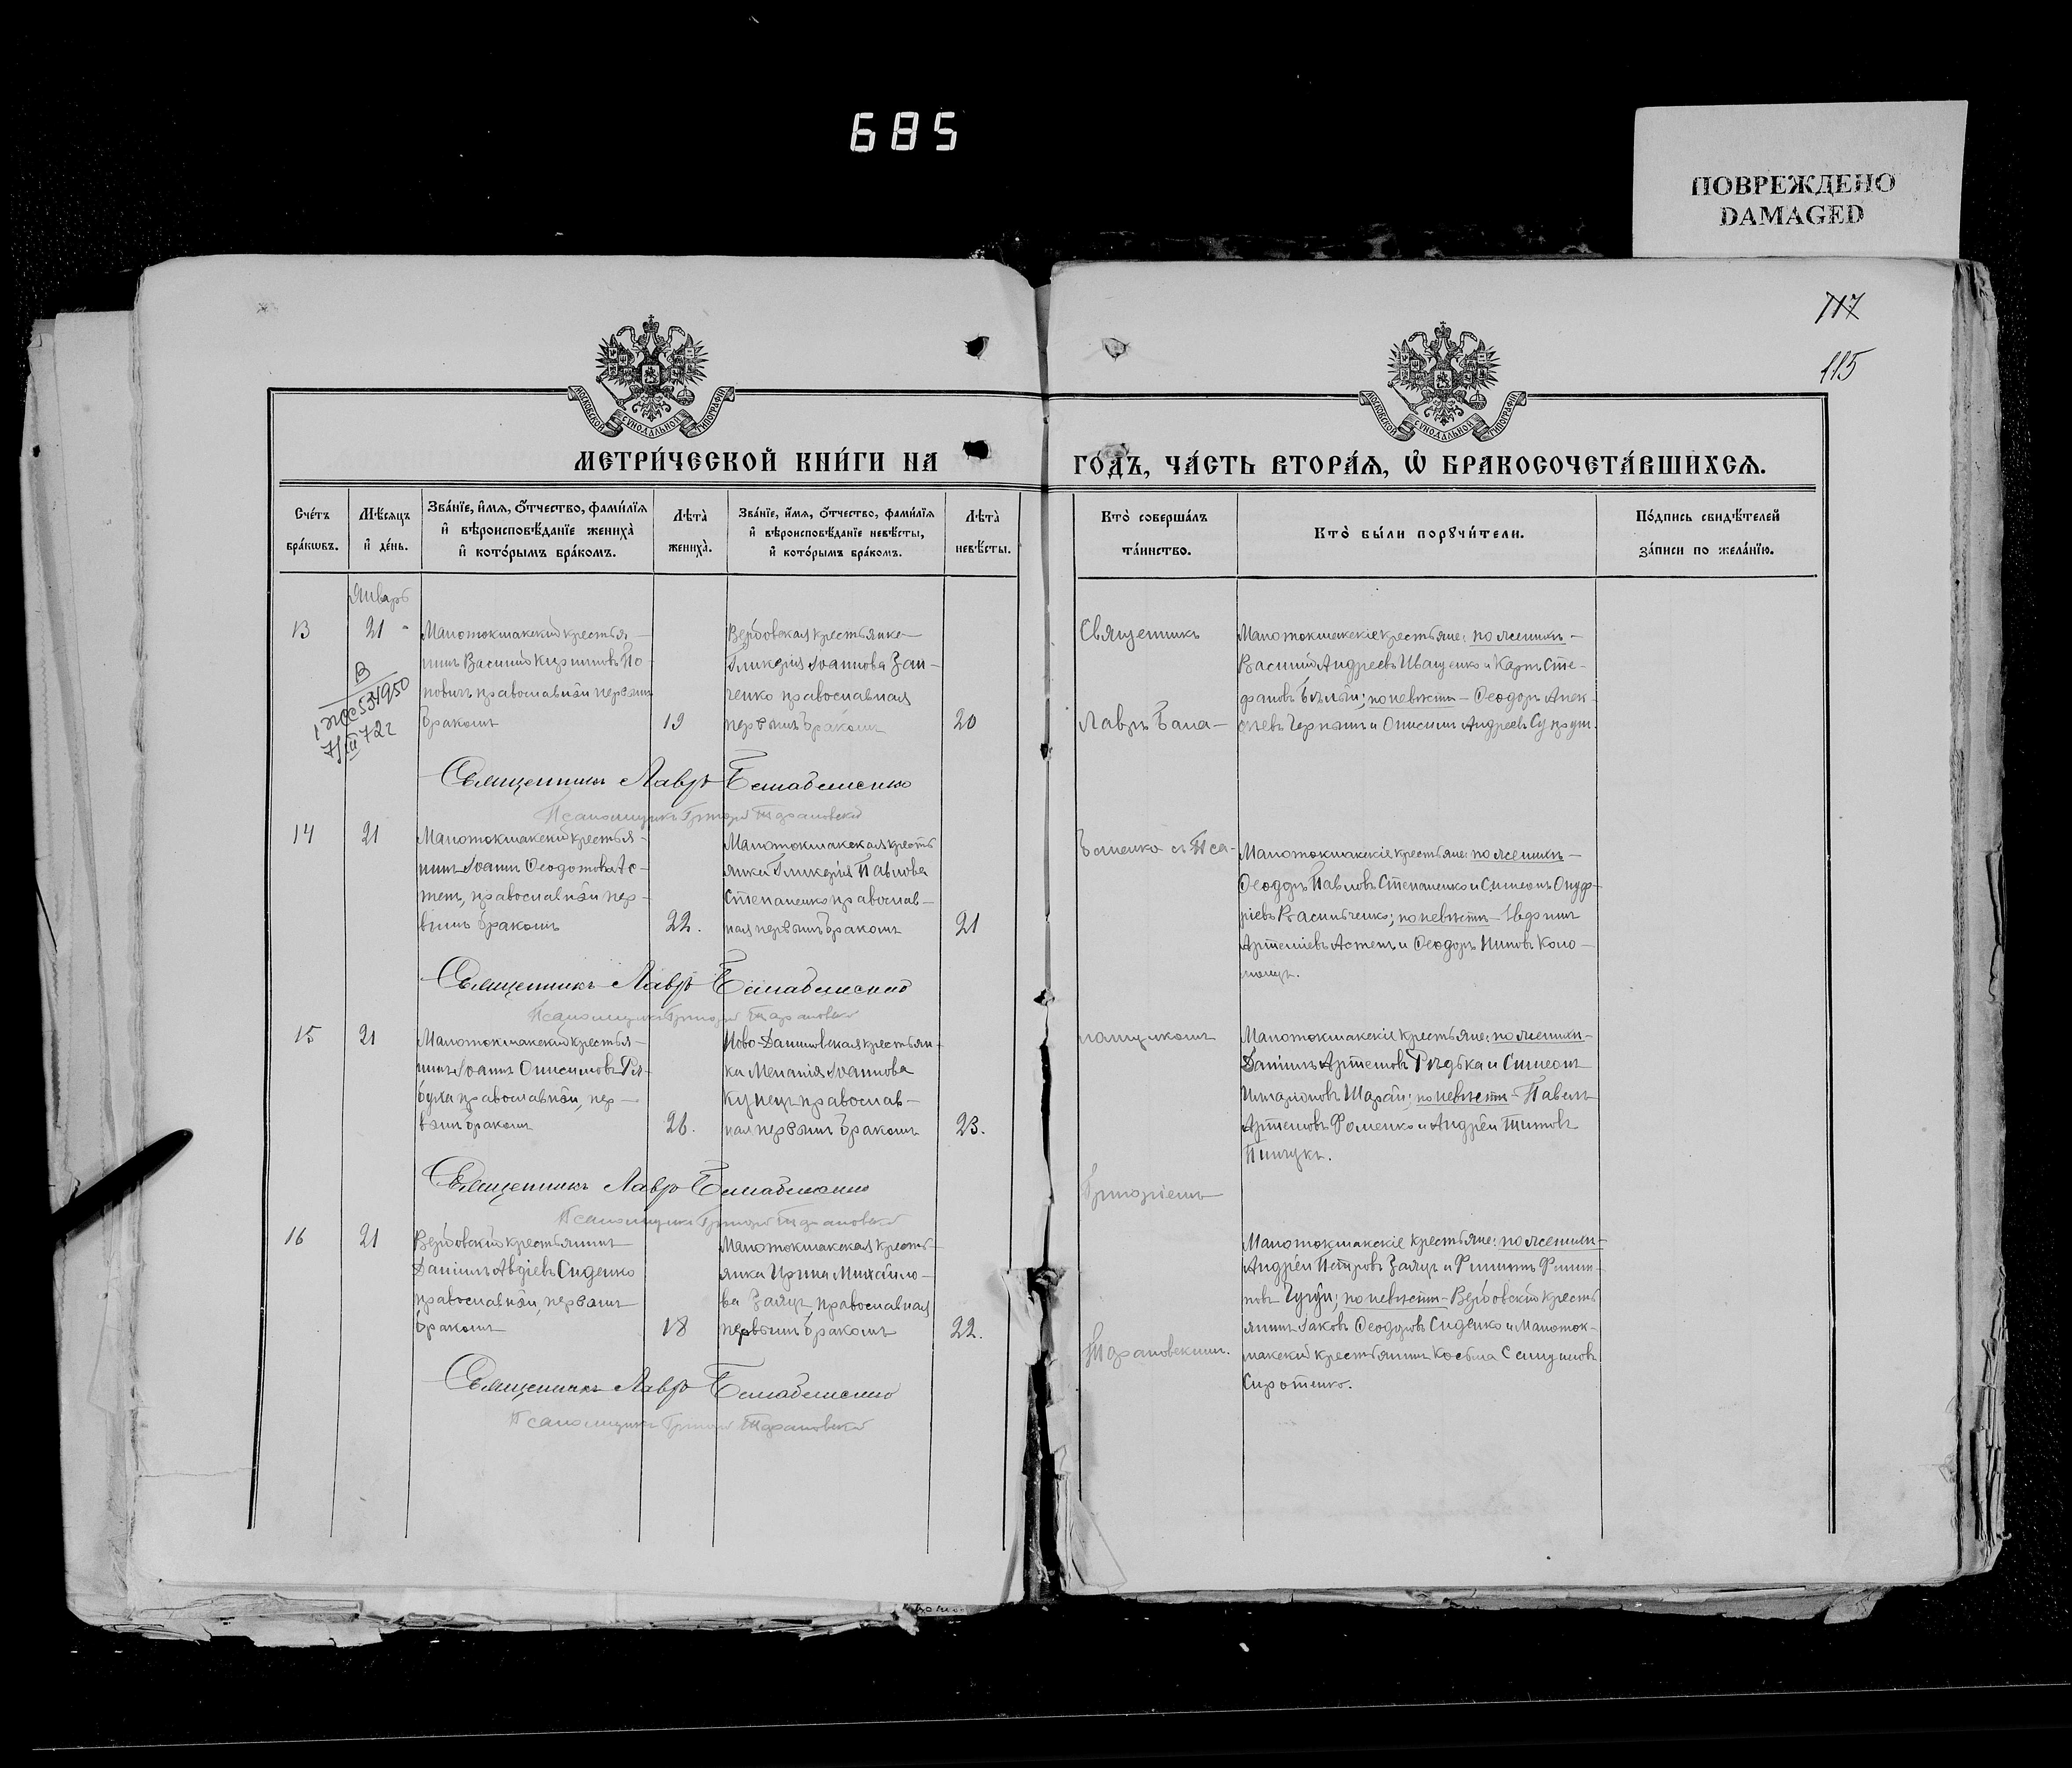 685
ПОВРЕЖДЕНО
DAMAGED
717
115
МОСКОВСКОЙ СѴНОДАЛЬНОЙ ТИПОГРАФІИ
МОСКОВСКОЙ СѴНОДАЛЬНОЙ ТИПОГРАФІИ
МЕТРИ́ЧЕСКОЙ КНИ́ГИ НА ГОДЪ, ЧА́СТЬ ВТОРА́Я, Ѡ҆ БРАКОСОЧЕТА́ВШИХСѦ.
Сче́тъ
бра́кѡвъ.
Мѣ́сѧцъ
и҆ де́нь.
Зва́нїе, и҆́мѧ, ѻ҆́тчество, фами́лїѧ
и҆ вѣроисповѣ́данїе жениха̀
и҆ кото́рымъ бра́комъ.
Лѣта̀
жениха̀.
Зва́нїе, и҆́мѧ, ѻ҆́тчество, фами́лїѧ
и҆ вѣроисповѣ́данїе невѣ́сты,
и҆ кото́рымъ бра́комъ.
Лѣта̀
невѣ́сты.
Кто̀ соверша́лъ
та́инство.
Кто̀ бы́ли порꙋчи́тели.
По́дпись свидѣ́телей
за́писи по жела́нїю.
Январь
13
21
В
7/III 72г
Малотокмакскій крестья-
нинъ Василій Кирилловъ По-
повичъ православный первымъ
бракомъ
19
Вербовская крестьянка
Гликерія Іоаннова Зан-
ченко православная
первымъ бракомъ
20
Священникъ
Лавръ Бала-
Малотокмакскіе крестьяне: по женихѣ -
Василій Андреевъ Иващенко и Карпъ Сте-
фановъ Бѣлый; по невѣстѣ - Ѳеодоръ Алек-
сѣевъ Черныш и Онисимъ Андреевъ Супрун.
Священникъ Лавръ Балабаненко
Псаломщикъ Григорій Тарановскій
14
21
Малотокмакскій крестья-
нинъ Іоаннъ Ѳеодотовъ Ас-
тенъ, православный пер-
вымъ бракомъ
22.
Малотокмакская кресть
янка Гликерія Павлова
Степаненко православ-
ная первымъ бракомъ
21
Малотокмакскіе крестьяне: по женихѣ -
Ѳеодоръ Павловъ Степаненко и Симеонъ Онуф-
ріевъ Васильченко; по невѣстѣ -
Артеміевъ Астенъ и Ѳеодоръ Ниловъ Коло-
Священникъ Лавръ Балабаненко
Псаломщикъ Григорій Тарановскій
15
21
Малотокмакскій крестья-
нинъ Іоаннъ Онисимовъ Ря-
буха православный, пер-
вымъ бракомъ
26.
Ново-Даниловская крестьян-
ка Меланія Іоаннова
Купецъ православ-
ная первымъ бракомъ
23.
ломщикомъ
Малотокмакскіе крестьяне: по женихѣ -
Даніилъ Артемовъ Рѣдька и Симеонъ
Иларіоновъ Шарай; по невѣстѣ - Павелъ
Артемовъ Фоменко и Андрей Титовъ
Пинчукъ.
Священникъ Лавръ Балабаненко
Псаломщикъ Григорій Тарановскій
Григоріемъ
16
21
Вербовскій крестьянинъ
Даніилъ Авдіевъ Сиденко
православный, первымъ
бракомъ
18
Малотокмакская кресть-
янка Ирина Михайло-
ва Заяцъ, православная
первымъ бракомъ
22.
Тарановскимъ.
Малотокмакскіе крестьяне: по женихѣ -
Андрей Петровъ Заяцъ и Филиппъ Филип-
повъ Чугуй; по невѣстѣ - Вербовскій кресть
янинъ Іаковъ Ѳеодоровъ Сиденко и Малоток-
макскій крестьянинъ Косьма
Сиротенко.
Священникъ Лавръ Балабаненко
Псаломщикъ Григорій Тарановскій